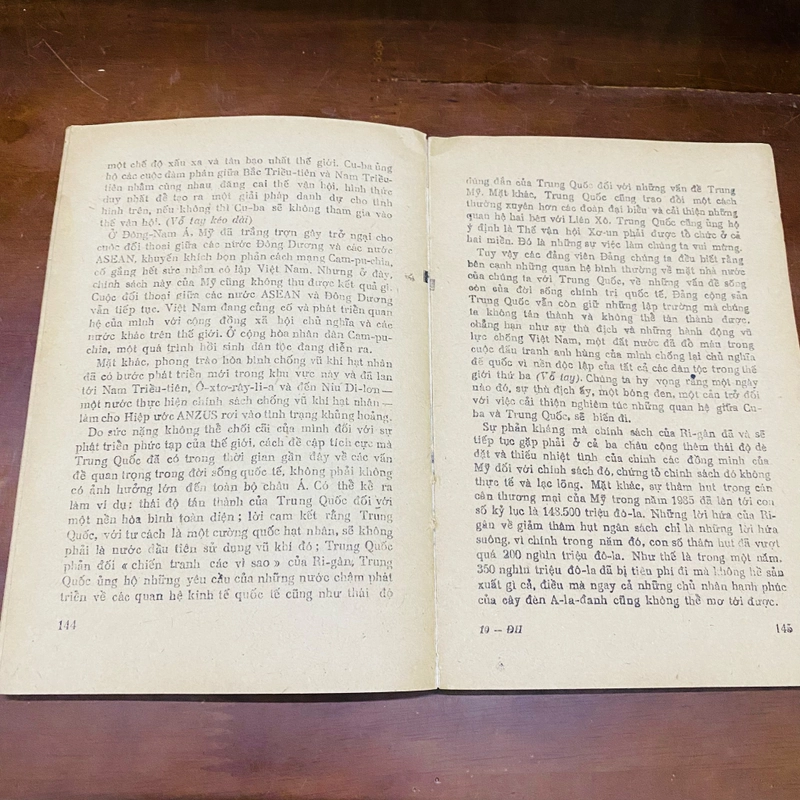 một chế độ xấu xa và tàn bạo nhất thế giới. Cu-ba ủng
hộ các cuộc đàm phán giữa Bắc Triều-tiên và Nam Triều-
tiên nhằm cùng nhau, đăng cai thế vận hội, hình thức
duy nhất để tạo ra một giải pháp danh dự cho tình
hình trên, nếu không thì Cu-ba sẽ không tham gia vào
thế vận hội. (Vỗ tay kéo dài)
Ở Đông-Nam Á, Mỹ đã trắng trợn gây trở ngại cho
cuộc đối thoại giữa các nước Đông Dương và các nước
ASEAN, khuyến khích bọn phản cách mạng Cam-pu-chia,
cố gắng hết sức nhằm cô lập Việt Nam. Nhưng ở đây,
chính sách này của Mỹ cũng không thu được kết quả gì.
Cuộc đối thoại giữa các nước ASEAN và Đông Dương
vẫn tiếp tục. Việt Nam đang củng cố và phát triển quan
hệ của mình với cộng đồng xã hội chủ nghĩa và các
nước khác trên thế giới. Ở cộng hòa nhân dân Cam-pu-
chia, một quá trình hồi sinh dân tộc đang diễn ra.
Mặt khác, phong trào hòa bình chống vũ khí hạt nhân
đã có bước phát triển mới trong khu vực này và đã lan
tới Nam Triều-tiên, Ô-xtơ-rây-li-a và đến Niu Di-lơn —
một nước thực hiện chính sách chống vũ khí hạt nhân —
làm cho Hiệp ước ANZUS rơi vào tình trạng khủng hoảng.
Do sức nặng không thể chối cãi của mình đối với sự
phát triển phức tạp của thế giới, cách đề cập tích cực mà
Trung Quốc đã có trong thời gian gần đây về các vấn
đề quan trọng trong đời sống quốc tế, không phải không
có ảnh hưởng lớn đến toàn bộ châu Á. Có thể kể ra
làm ví dụ: thái độ tán thành của Trung Quốc đối với
một nền hòa bình toàn diện; lời cam kết rằng Trung
Quốc, với tư cách là một cường quốc hạt nhân, sẽ không
phải là nước đầu tiên sử dụng vũ khí đó; Trung Quốc
phản đối « chiến tranh các vì sao » của Ri-gân; Trung
Quốc ủng hộ những yêu cầu của những nước chậm phát
triển về các quan hệ kinh tế quốc tế cũng như thái độ
144
đúng đắn của Trung Quốc đối với những vấn đề Trung
Mỹ. Mặt khác, Trung Quốc cũng trao đổi một cách
thường xuyên hơn các đoàn đại biểu và cải thiện những
quan hệ hai bên với Liên Xô. Trung Quốc cũng ủng hộ
ý định là Thế vận hội Xơ-un phải được tổ chức ở cả
hai miền. Đó là những sự việc làm chúng ta vui mừng.
Tuy vậy các đảng viên Đảng chúng ta đều biết rằng
bên cạnh những quan hệ bình thường về mặt nhà nước
của chúng ta với Trung Quốc, về những vấn đề sống
còn của đời sống chính trị quốc tế, Đảng cộng sản
Trung Quốc vẫn còn giữ những lập trường mà chúng
ta không tán thành và không thể tán thành được,
chẳng hạn như sự thù địch và những hành động vũ
lực chống Việt Nam, một đất nước đã đổ máu trong
cuộc đấu tranh anh hùng của mình chống lại chủ nghĩa
đế quốc vì nền độc lập của tất cả các dân tộc trong thế
giới thứ ba (Vỗ tay). Chúng ta hy vọng rằng một ngày
nào đó, sự thù địch ấy, một bóng đen, một cản trở đối
với việc cải thiện nghiêm túc những quan hệ giữa Cu-
ba và Trung Quốc, sẽ biến đi.
Sự phản kháng mà chính sách của Ri-gân đã và sẽ
tiếp tục gặp phải ở cả ba châu cộng thêm thái độ dè
dặt và thiếu nhiệt tình của chính các đồng minh của
Mỹ đối với chính sách đó, chứng tỏ chính sách đó không
thực tế và lạc lõng. Mặt khác, sự thâm hụt trong cán
cân thương mại của Mỹ trong năm 1985 đã lên tới con
số kỷ lục là 148.500 triệu đô-la. Những lời hứa của Ri-
gân về giảm thâm hụt ngân sách chỉ là những lời hứa
suông, vì chính trong năm đó, con số thâm hụt đã vượt
quá 200 nghìn triệu đô-la. Như thế là trong một năm,
350 nghìn triệu đô-la đã bị tiêu phí đi mà không hề sản
xuất gì cả, điều mà ngay cả những chủ nhân hạnh phúc
của cây đèn A-la-đanh cũng không thể mơ tới được.
10 — ĐH
145